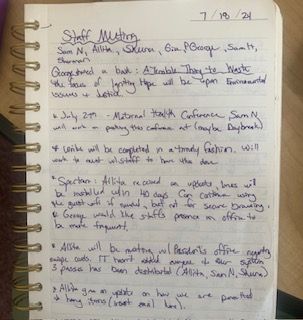 7/18/24
Staff Meeting
Sam N, Allita, Shauna, Gia, P George, Sam H,
Shannon
George shared a book: A Terrible Thing to Waste
the focus of Igniting Hope will be upon Environmental
issues & Justice
* July 27th - Maternal Health Conference, Sam N
will work on posting this conference at (maybe Daybreak)
* Links will be completed in a timely fashion. Will
work to meet w/ staff to have this done
* Spectrum: Allita received an update, lines will
be installed w/in 40 days. Can continue using
the guest wifi if needed, but not for secure browsing.
* George would like staff's presence in office to
be more frequent.
* Allita will be meeting w/ President's office regarding
swipe cards. IT hasn't added anyone to the system
3 passes has been distributed (Allita, Sam N, Shauna)
* Allita gave an update on how we are permitted
to hang items (insert email here)